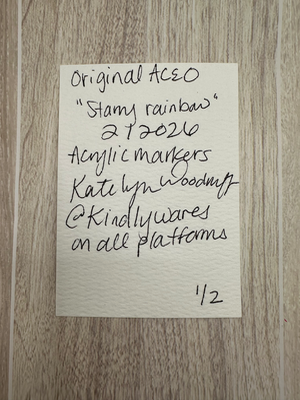 Original ACEO
"Starry rainbow"
2 1 2026
Acrylic markers
Katelyn Woodruff
@Kindlywares
on all platforms
1/2